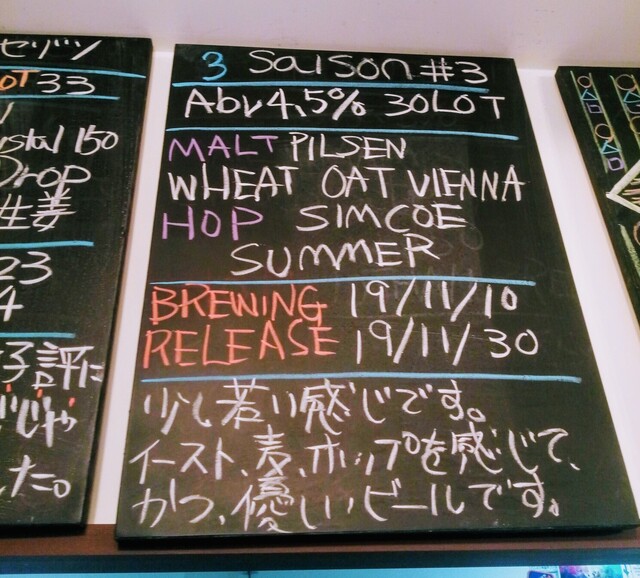 セゾン
OT 33
stal 150
Drop
生麦
23
4
好評に
じゃ
た。
3 Saison #3
Abv 4,5% 30LOT
MALT PILSEN
WHEAT OAT VIENNA
HOP SIMCOE
SUMMER
BREWING 19/11/10
RELEASE 19/11/30
少し若い感じです。
イースト、麦、ホップを感じて、
かつ、優しいビールです。